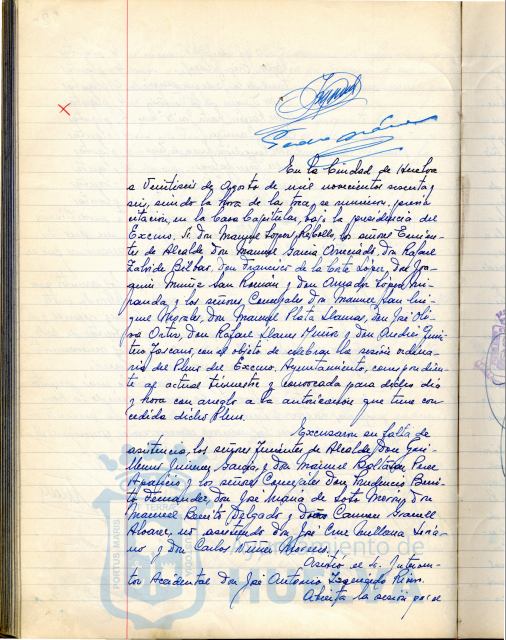 En la Ciudad de Huelva
a Veintiseis de Agosto de mil novecientos sesenta y
seis, siendo la hora de las trece, se reunieron, previa
citación, en la Casa Capitular, bajo la presidencia del
Excmo. Sr. Don Manuel López Rebollo, los señores Tenien-
tes de Alcalde Don Manuel García Arreciado, Don Rafael
Bilbao, Don Francisco de la Corte López, Don Joa-
quín Muñiz San Román y Don Amador López Mi-
randa, y los señores Concejales Don Manuel San
Negrales, Don Manuel Plata Llamas, Don José Oli-
va Ortiz, Don Rafael Llanes Muñoz y Don Andrés Quin-
tero Toscano, con el objeto de celebrar la sesión ordina-
ria del Pleno del Excmo. Ayuntamiento, correspondien-
te al actual trimestre y convocada para dichos día
y hora con arreglo a la autorización que tiene con
cedida dicho Pleno.
Excusaron su falta de
asistencia los señores Tenientes de Alcalde Don Gui-
llermo Jiménez y Don Manuel Baltasar Pérez
Aparicio y los señores Concejales Don Prudencio Beni-
to Don José María de Soto Morón, Don
Manuel Benito Delgado y Doña Carmen
Alvarez, no asistiendo Don José Cruz
y Don Carlos Moreno.
Asistió el Sr. Interven-
tor Accidental Don José Antonio Izquierdo
Abierta la sesión por el
PORTUS MARIS
TERRAE
Ayuntamiento de